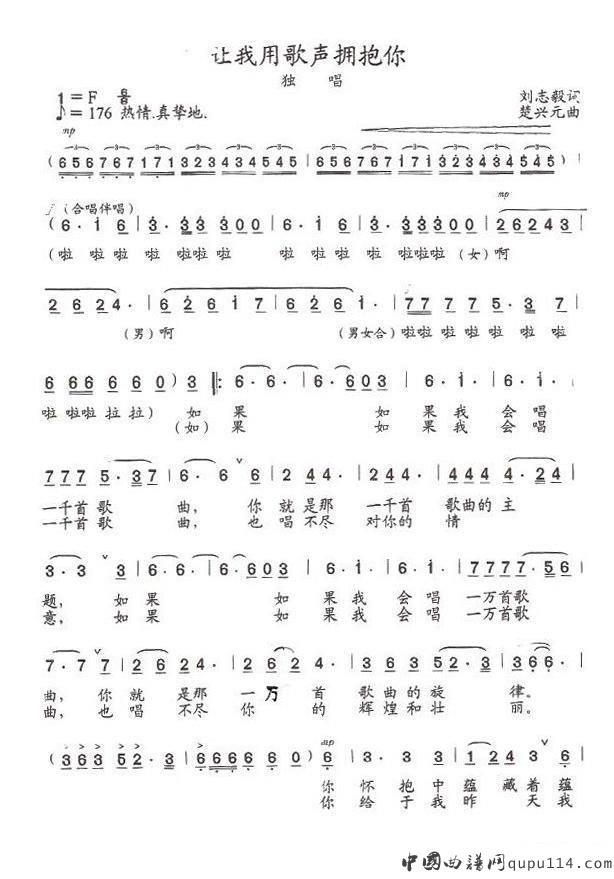 让我用歌声拥抱你
独 唱
1 = F
♪= 176 热情.真挚地.
刘志毅词
楚兴元曲
mp
( 6 5 6 7 6 7 1 7 1 3 2 3 4 3 4 5 4 5 | 6 5 6 7 6 7 1 7 1 3 2 3 4 3 4 5 4 5 ) |
(合唱伴唱) mp
( 6 · 1 6 | 3 · 3 3 3 0 0 | 6 · 1 6 | 3 · 3 3 3 0 0 | 2 6 2 4 3 |
(啦 啦 啦 啦 啦啦 啦 啦 啦 啦 啦 啦啦啦 (女)啊
2 6 2 4 · | 6 2 6 1 7 | 6 2 6 1 · | 7 7 7 7 5 · 3 7 |
(男)啊 (男女合) 啦啦 啦啦 啦 啦 啦
6 6 6 6 6 0 ) 3 |: 6 · 6 · | 6 · 6 0 3 | 6 · 1 · | 6 · 1 · |
啦 啦啦 拉 拉) 如 果 如 果 我 会 唱
(如) 果 如 果 我 会 唱
7 7 7 5 · 3 7 | 6 · 6 ∨ 6 | 2 4 4 · | 2 4 4 · | 4 4 4 4 · 2 4 |
一千首 歌 曲, 你 就 是那 一千 首 歌曲的 主
一千首 歌 曲, 也 唱 不尽 对你 的 情
3 · 3 ∨ 3 | 6 · 6 · | 6 · 6 0 3 | 6 · 1 · | 6 · 1 · | 7 7 7 7 · 5 6 |
题, 如 果 如 果 我 会 唱 一万首歌
意, 如 果 如 果 我 会 唱 一万首歌
7 · 7 ∨ 7 | 2 6 2 4 · | 2 6 2 4 | 3 6 3 5 2 · 3 | 3 6 6 · |
曲, 你 就 是那 一 万 首 歌 曲 的 旋 律。
曲, 也 唱 不尽 你 的 辉 煌 和 壮 丽。
( 3 6 3 5 2 · 3 | 6 6 6 6 6 0 ) 6 | 3 · 3 3 | 1 2 4 3 ∨ 6 |
mp
你 怀 抱 中 蕴 藏 着 蕴
你 给 于 我 昨 天 我
中国曲谱网qupu114.com